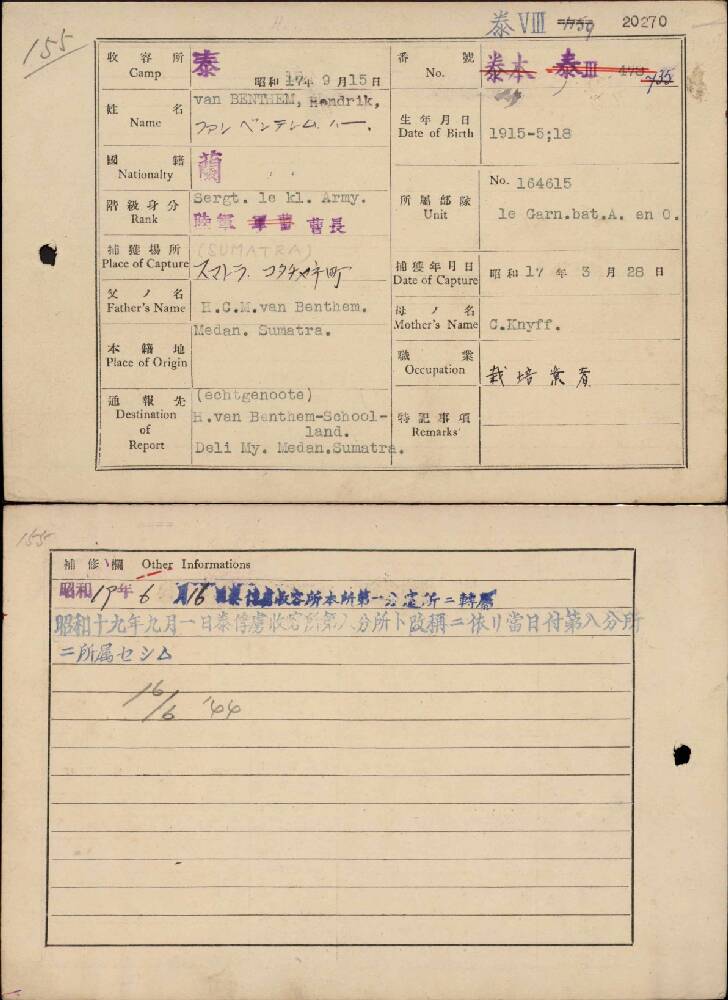 155
泰VIII 1159 20270
收容所
Camp
泰
昭和17年9月15日
番號
No.
泰本 泰III 473 735
姓名
Name
van BENTHEM, Hendrik,
ファン ベンテム ハー.
生年月日
Date of Birth
1915-5;18
國籍
Nationalty
蘭
所屬部隊
Unit
No. 164615
1e Garn.bat.A. en O.
階級身分
Rank
Sergt. 1e kl. Army.
陸軍 軍曹 曹長
捕獲場所
Place of Capture
(SUMATRA)
スマトラ. コタチャネ町
捕獲年月日
Date of Capture
昭和 17 年 3 月 28 日
父ノ名
Father's Name
H.C.M.van Benthem.
母ノ名
Mother's Name
C.Knyff.
本籍地
Place of Origin
Medan. Sumatra.
職業
Occupation
栽培業者
通報先
Destination
of
Report
(echtgenoote)
H.van Benthem-School-
land.
Deli My. Medan.Sumatra.
特記事項
Remarks
155
補修欄 Other Informations
昭和19年6月16日泰俘虜收容所本所第一分遣所ニ轉屬
昭和十九年九月一日泰俘虜收容所第八分所ト改稱ニ依リ當日付第八分所
ニ所屬セシム
16/6 '44